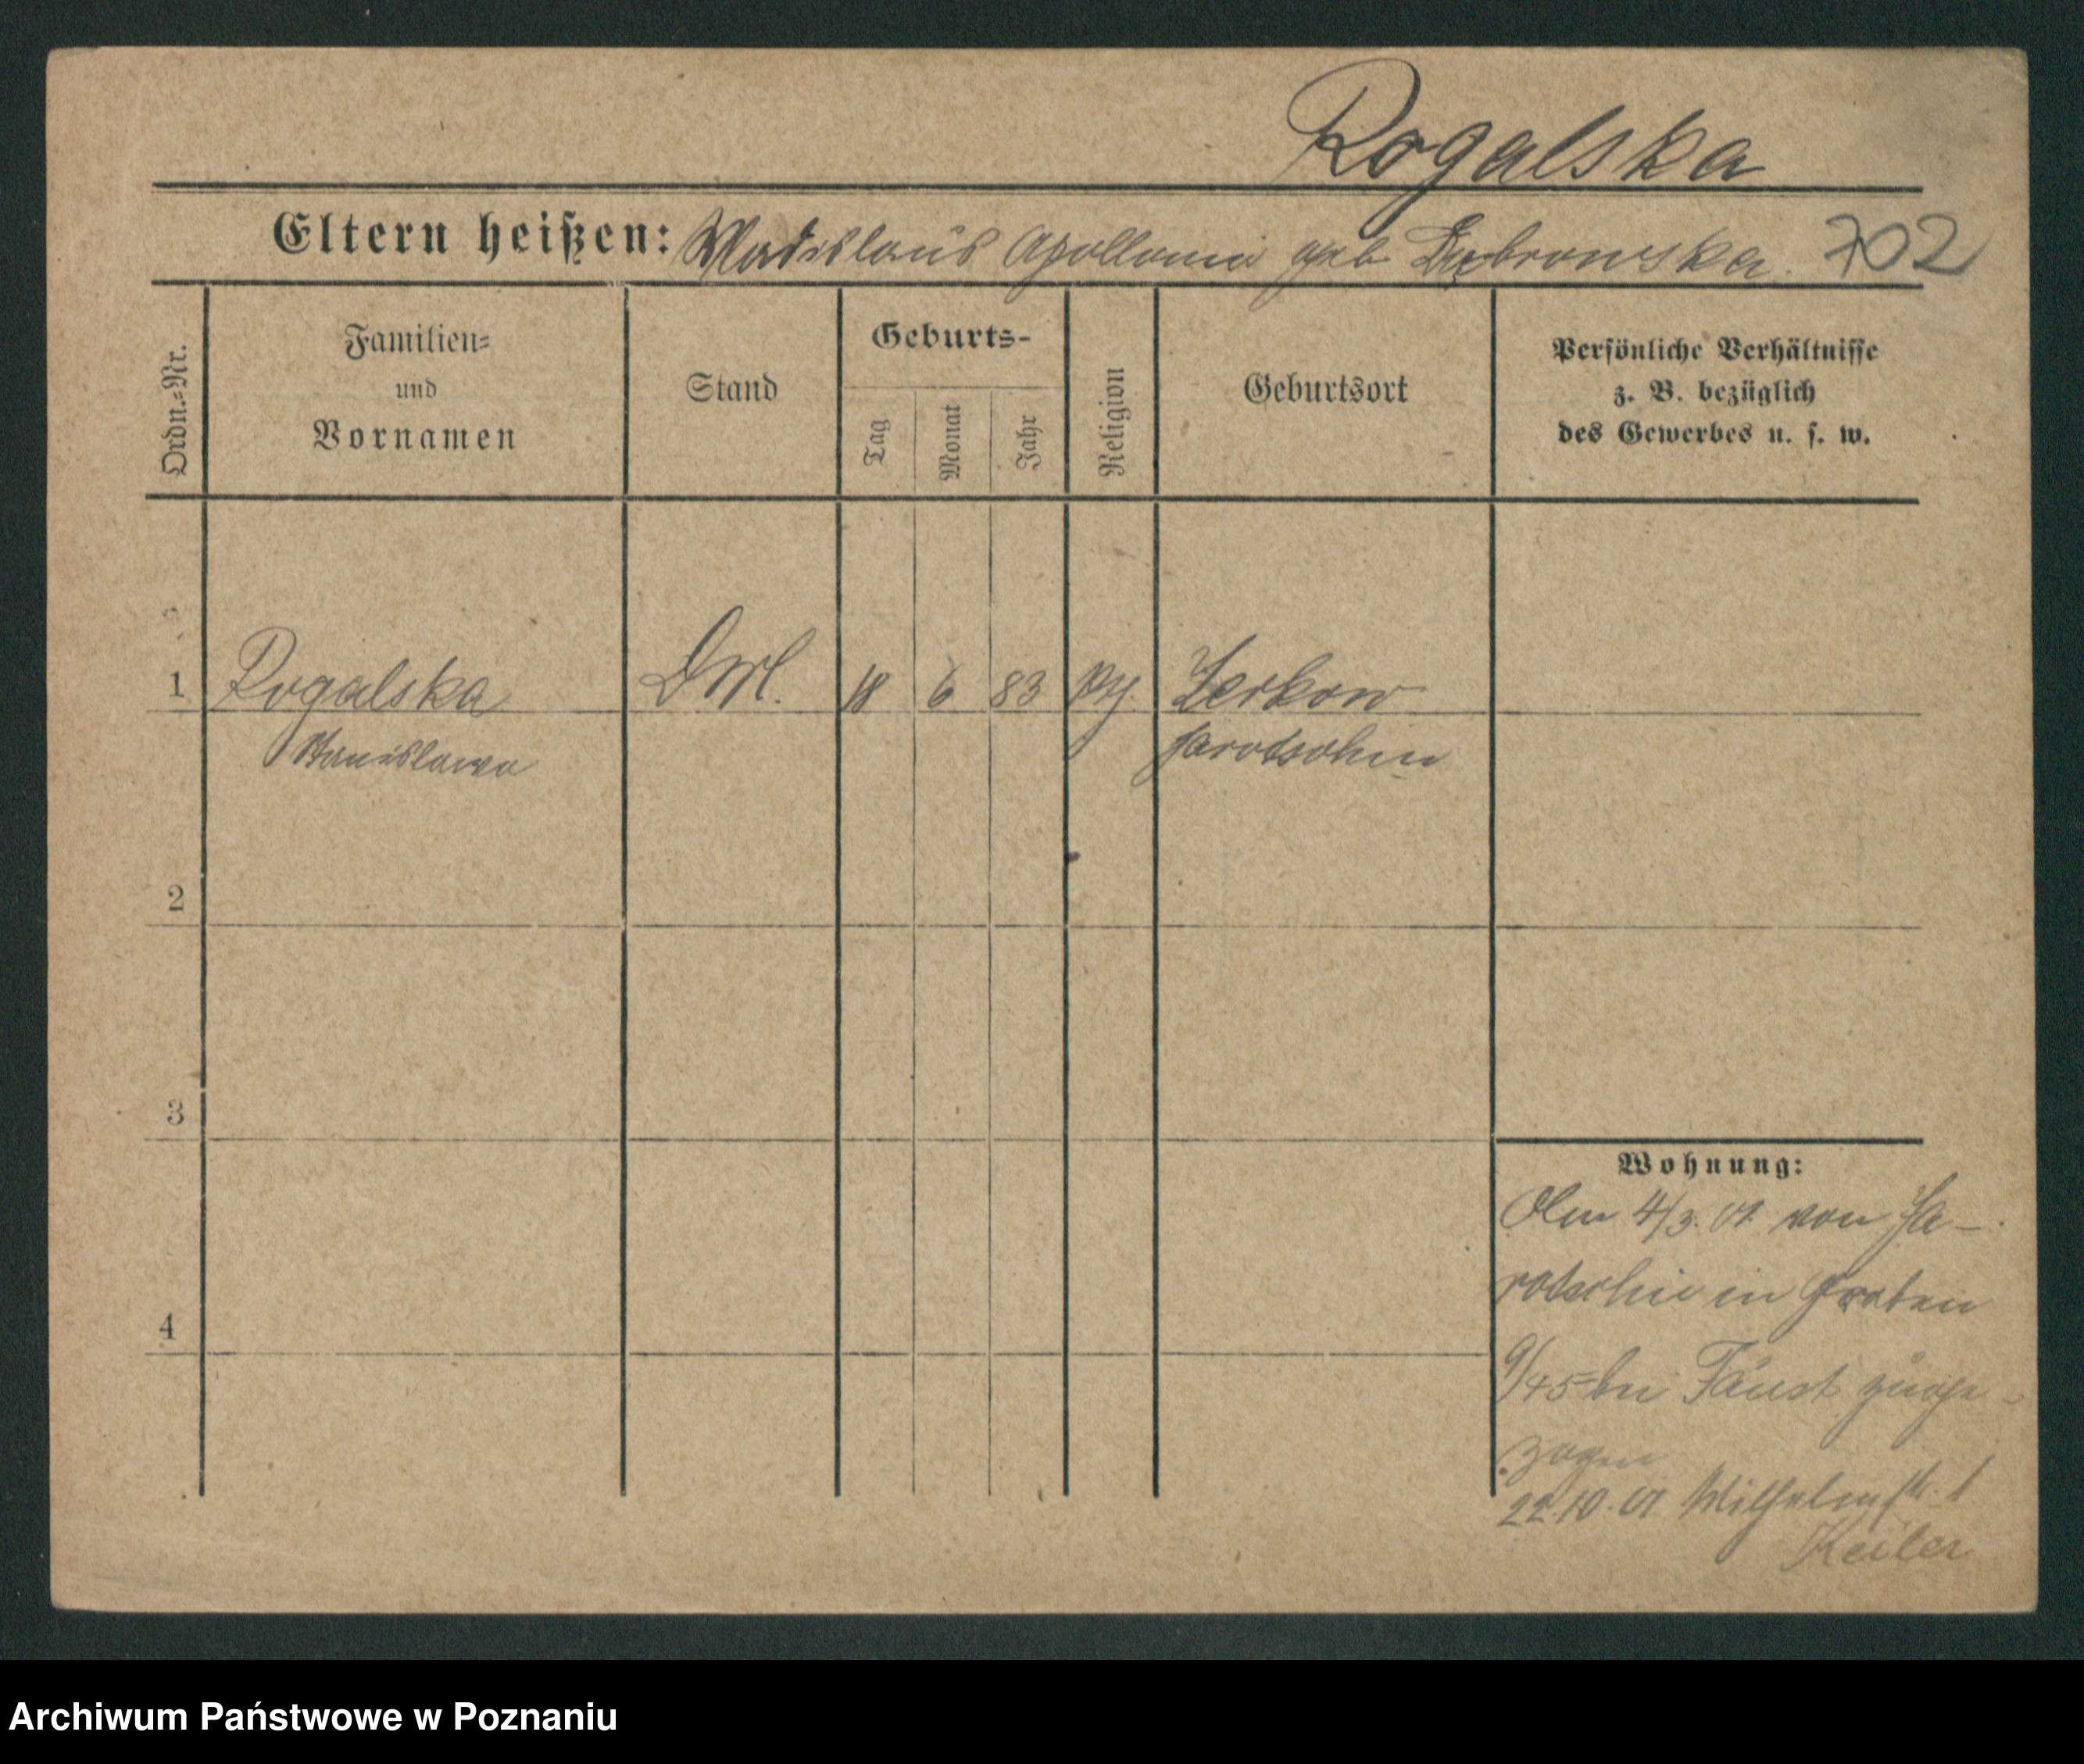 Rogalska
Eltern heißen: Wladislaus Apollonia geb Dąbrowska. 702
Ordn.=Nr.
Familien=
und
Vornamen
Stand
Geburts-
Tag
Monat
Jahr
Religion
Geburtsort
Persönliche Verhältnisse
z. B. bezüglich
des Gewerbes u. s. w.
1 Rogalska 18 6 83 Zerkow
Stanislawa Jarotschin
2
3
4
Wohnung:
Am 4/3. 01. von Ja-
rotschin in Graben
bei Faust zuge-
zogen
22.10.01 Wilhelmstr. 1
Keiler
Archiwum Państwowe w Poznaniu